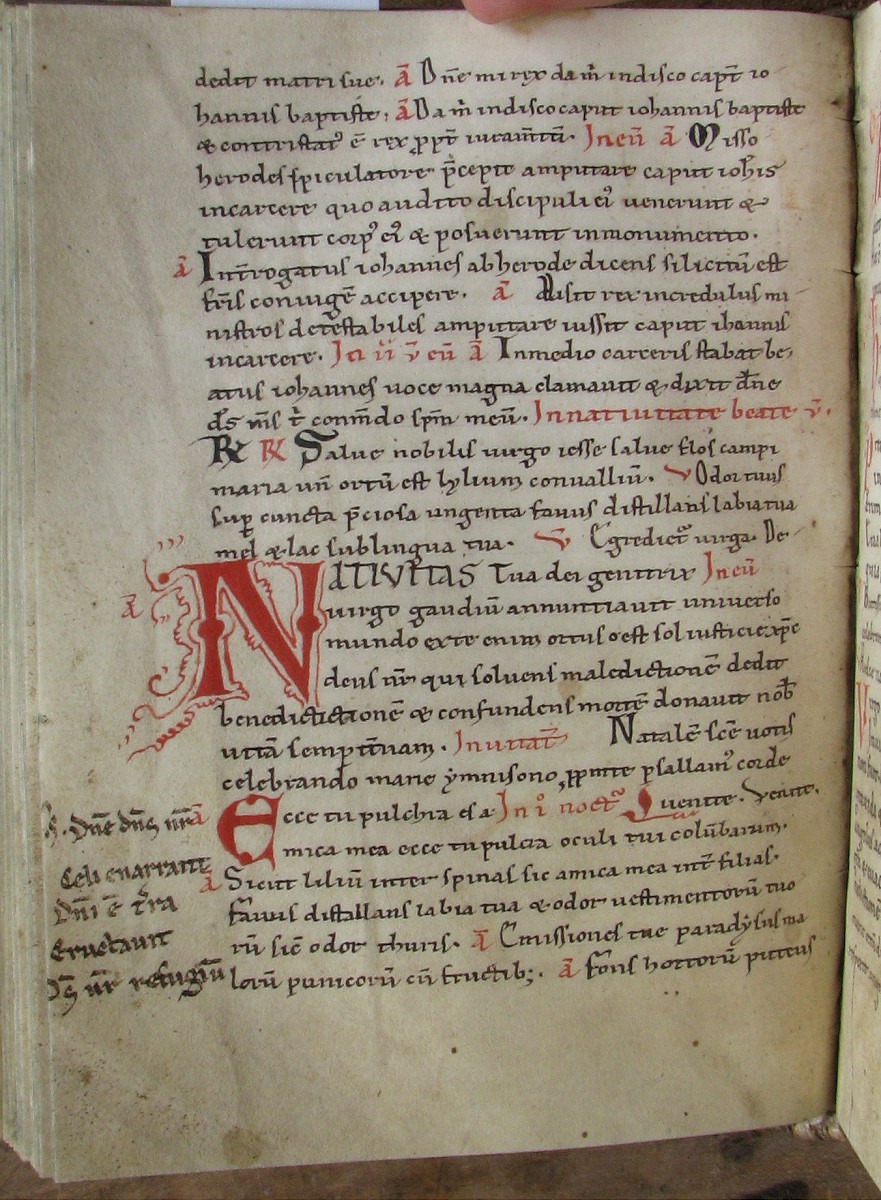 dedit matri sue. a̅ Dn̅e mi rex da m̅ in disco capt̅ io
hannis baptiste. a̅ Da m̅ in disco caput iohannis baptiste
& contristat᷒ e̅ rex ꝓpt̅ iuram̅tu̅. In eu̅ a̅ Misso
herodes spiculatore p̅cepit amputare caput ioh̅is
in carcere quo audito discipuli ei᷒ venerunt &
tulerunt corp᷒ ei᷒ & posuerunt in monumento.
a̅ Int̅rogatus iohannes ab herode dicens si licitu̅ est
fr̅is coniuge̅ accipere. a̅ Misit rex incredulus mi
nistros detestabiles amputare iussit caput iohannis
in carcere. In ii v̅ eu̅ a̅ In medio carceris stabat be
atus iohannes voce magna clamavit & dixit dn̅e
ds̅ m̅s t̅ com̅do sp̅m meu̅. In nativitate beate v̅.
R̸ R̸ Salve nobilis virgo iesse salve flos campi
maria un̅ ortu̅ est hylium convalliu̅. V Odor tuus
sup̲ cuncta p̅ciosa ungenta favus distillans labia tua
mel & lac sub lingua tua. V Egrediet᷒ virga. De
a̅ NATIVITAS Tua dei genitrix In eu̅
virgo gaudiu̅ annuntiavit universo
mundo ex te enim ortus est sol iusticie xp̅c
deus nr̅ qui solvens maledictione̅ dedit
benedictictione̅ & confundens morte̅ donavit nob̅
vita̅ sempit̅nam. Invitat̅ Natale̅ sce̅ votis
celebrando marie ymnisono ꝓmite psallam᷒ corde
a̅ Ecce tu pulchra es a In i᷒ noct᷒ Quenite. Venite.
mica mea ecce tu pulcra oculi tui colu̅barum.
a̅ Sicut liliu̅ inter spinas sic amica mea int̅ filias.
Favus distallans labia tua & odor vestimentoru̅ tuo
ru̅ sic̅ odor thuris. a̅ Emissiones tue paradysus ma
loru̅ punicoru̅ cu̅ fructib;. a̅ Fons hortoru̅ puteus
Dn̅e dn̅s nr̅
Celi enarrant
Dn̅i e̅ t̅ra
Eructavit
Ds̅ nr̅ refugiu̅